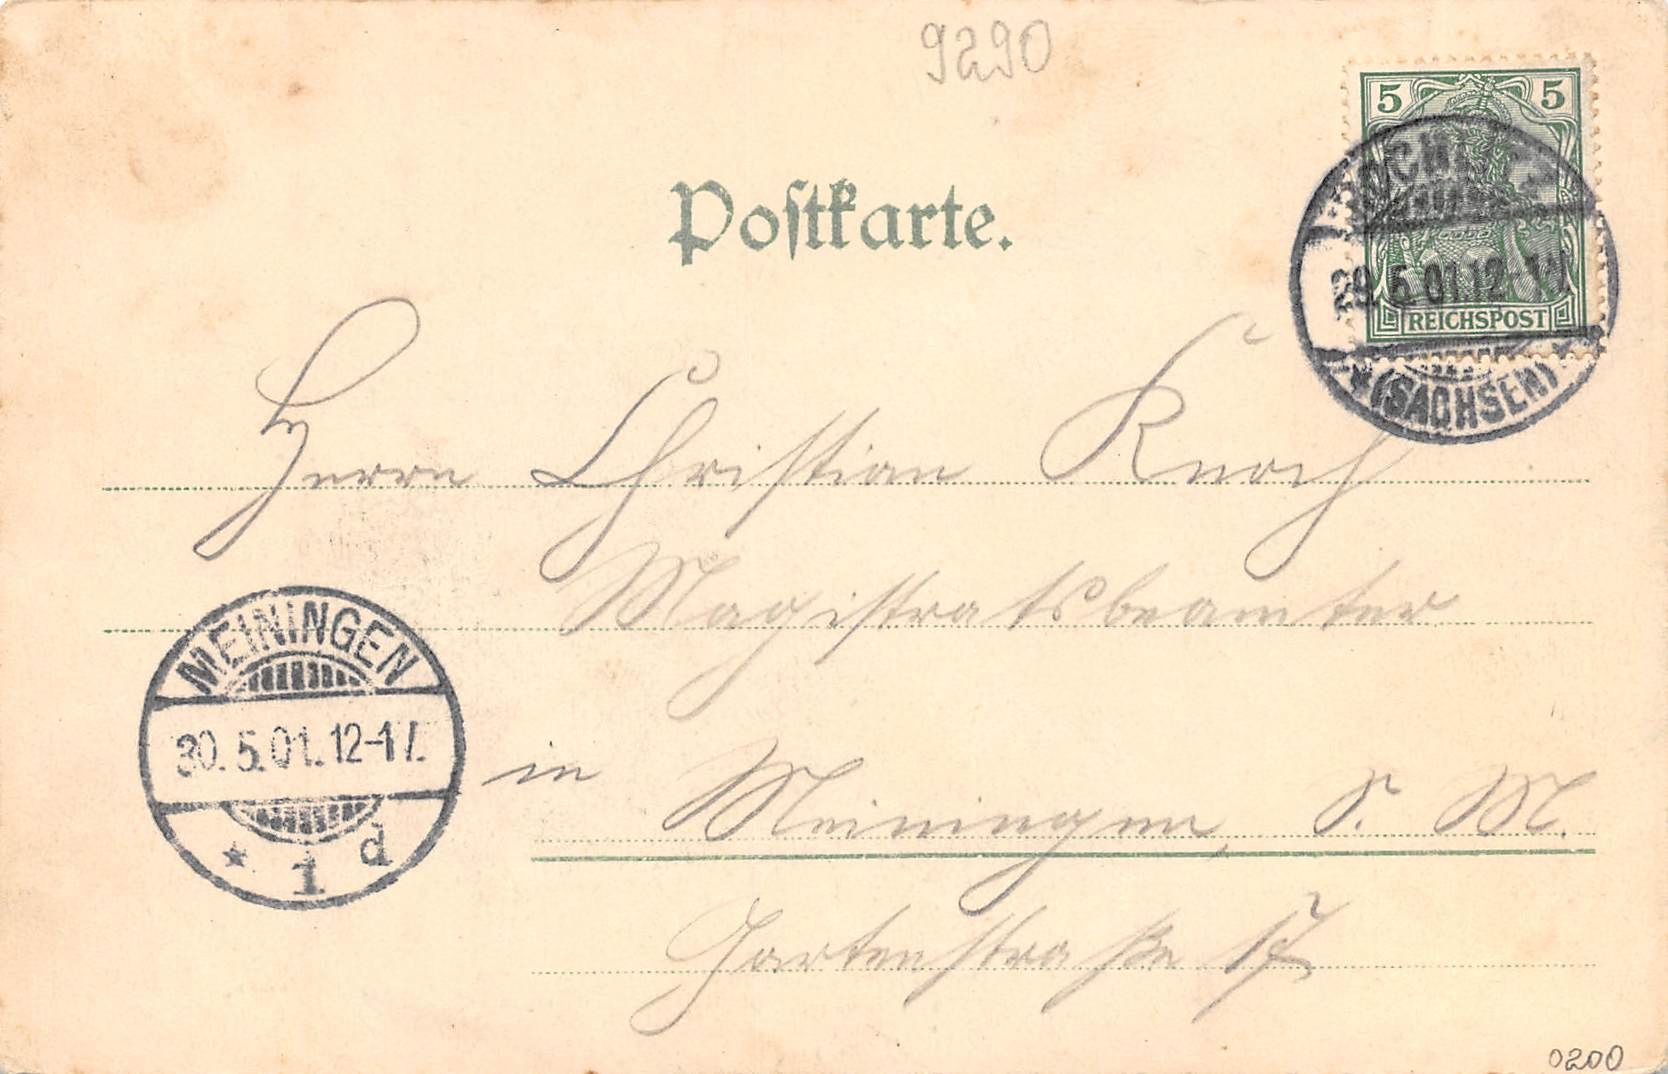 9290
5 5
Postkarte.
29.5.01.12-1
REICHSPOST
(SACHSEN)
Herrn Christian Knoch
Magistratsbeamter
MEININGEN
30.5.01.12-1
* 1 d
in Meiningen, S. M.
Gartenstraße 17
0200